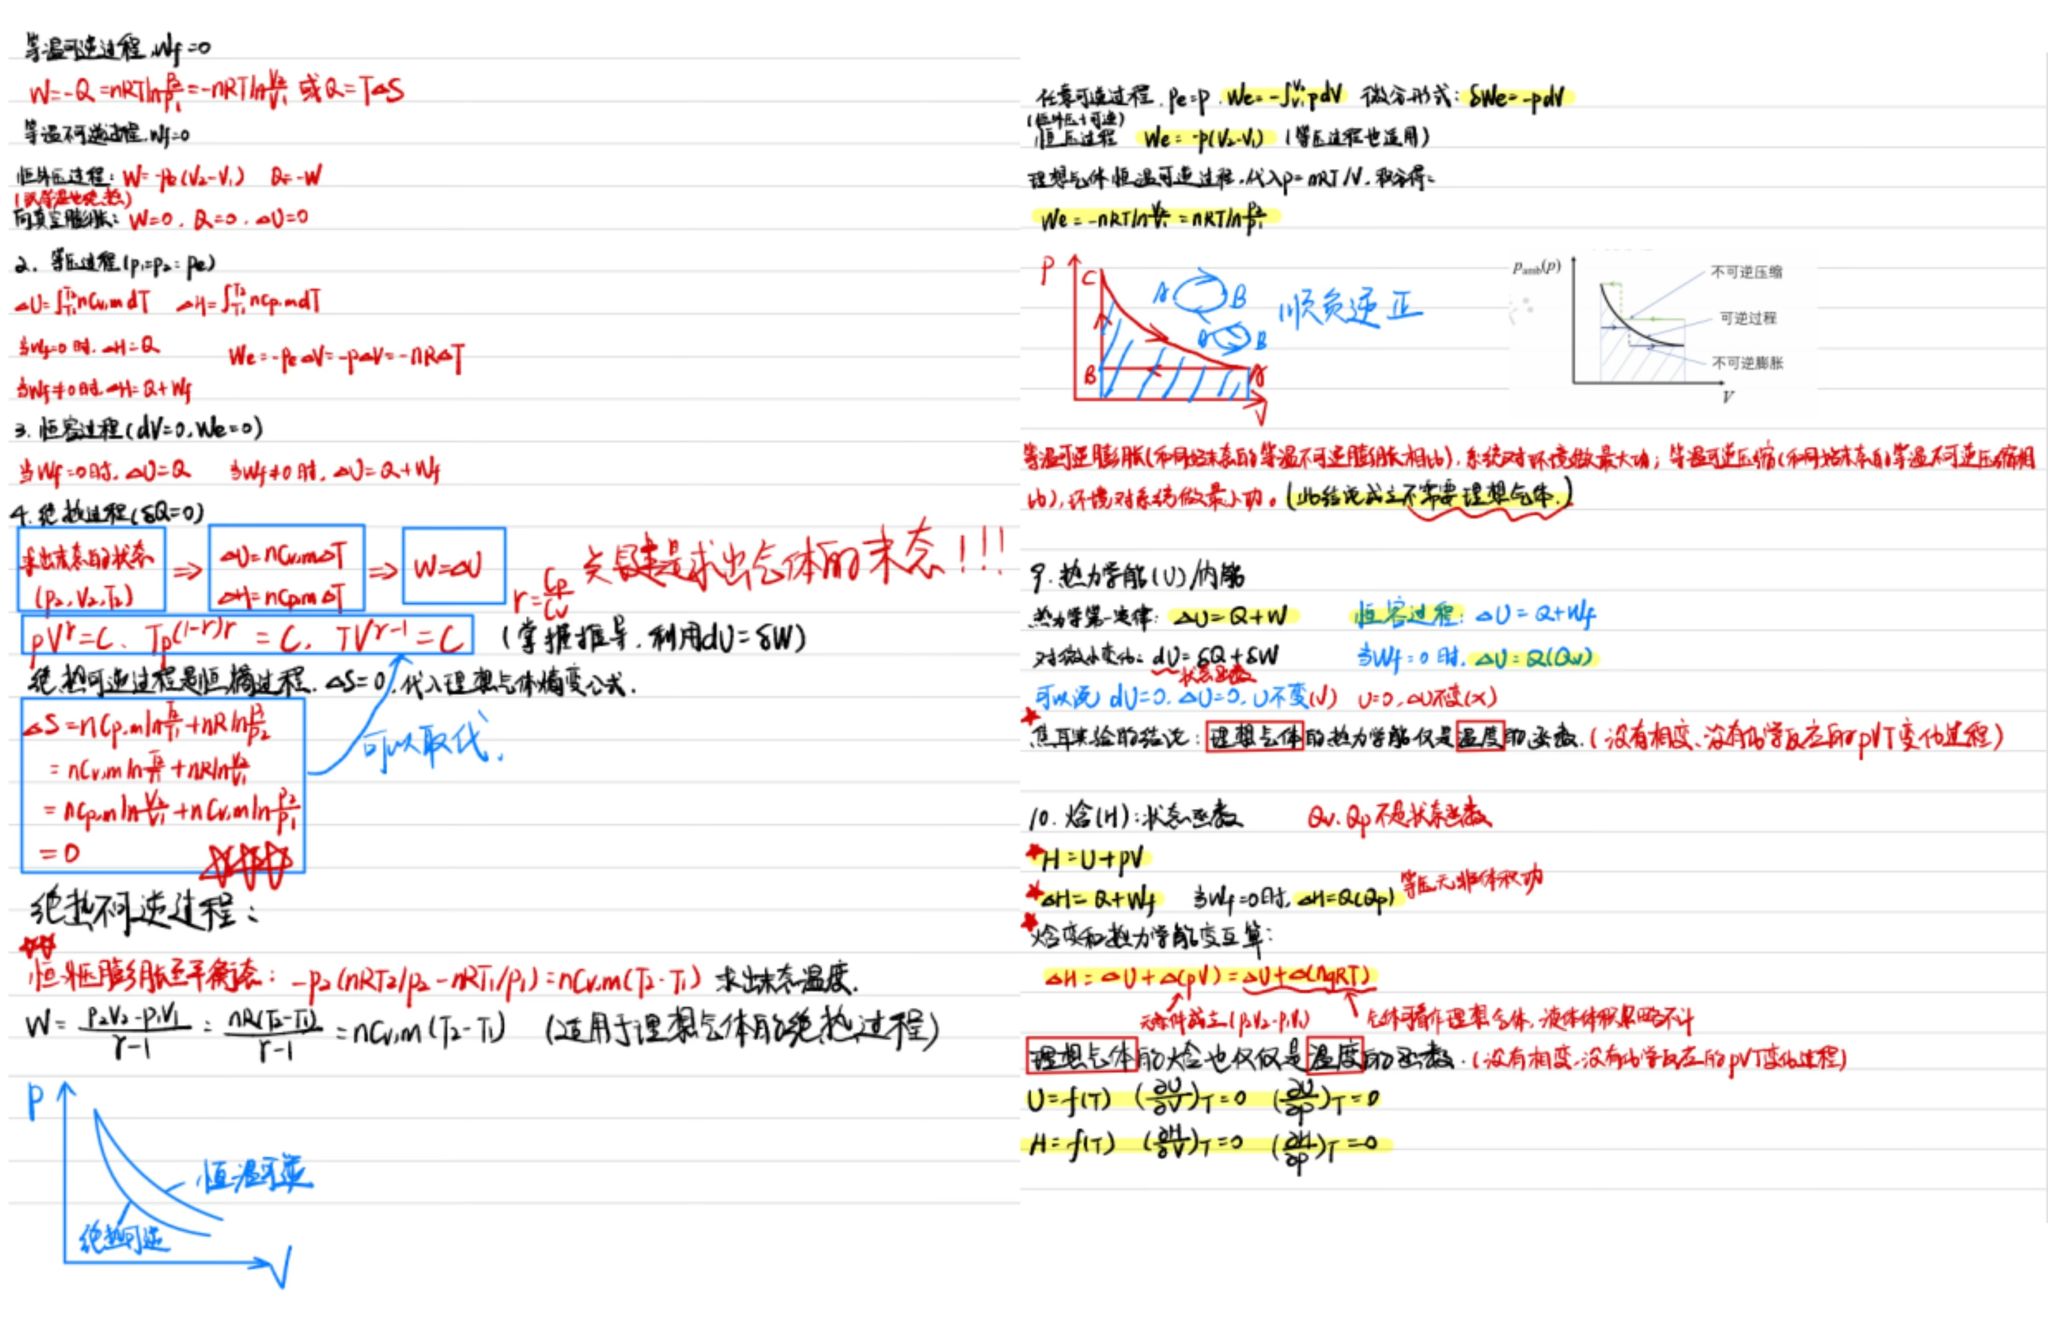 等温可逆过程,Wf=0
W=-Q=nRTln p₂/p₁=-nRTln V₂/V₁ 或Q=TΔS
等温不可逆过程,Wf=0
恒外压过程: W=-pe(V₂-V₁) Q=-W
向真空膨胀: W=0, Q=0, ΔU=0
2. 等压过程(p₁=p₂=pe)
ΔU=∫T₁T₂ nCv,mdT ΔH=∫T₁T₂ nCp,mdT
当Wf=0时,ΔH=Q
We=-peΔV=-pΔV=-nRΔT
当Wf≠0时,ΔH=Q+Wf
3. 恒容过程(dV=0,We=0)
当Wf=0时,ΔU=Q 当Wf≠0时,ΔU=Q+Wf
4. 绝热过程(δQ=0)
求出末态的状态
(p₂,V₂,T₂)
⇒
ΔU=nCv,mΔT
ΔH=nCp,mΔT
⇒ W=ΔU
r=Cp/Cv
关键是求出气体的末态!!!
pV^r=C, Tp^(1-r)r=C, TV^r-1=C (掌握推导,利用dU=δW)
绝热可逆过程是恒熵过程,ΔS=0,代入理想气体熵变公式.
ΔS=nCp,mln T₂/T₁+nRln p₁/p₂
=nCv,mln T₂/T₁+nRln V₂/V₁
=nCp,mln V₂/V₁+nCv,mln p₂/p₁
=0
可以取代.
绝热不可逆过程:
恒外压膨胀至平衡态: -p₂(nRT₂/p₂-nRT₁/p₁)=nCv,m(T₂-T₁) 求出末态温度.
W=p₂V₂-p₁V₁/r-1=nR(T₂-T₁)/r-1=nCv,m(T₂-T₁) (适用于理想气体的绝热过程)
P
恒温可逆
绝热可逆
V
任意可逆过程,pe=p, We=-∫V₁V₂pdV 微分形式: δWe=-pdV
(恒外压+可逆)
恒压过程 We=-p(V₂-V₁) (等压过程也适用)
理想气体恒温可逆过程,代入p=nRT/V,积分得:
We=-nRTln V₂/V₁=nRTln p₂/p₁
P
C
B
A
V
A B
B
顺负逆正
pamb(p)
不可逆压缩
可逆过程
不可逆膨胀
V
等温可逆膨胀(和同始末态的等温不可逆膨胀相比),系统对环境做最大功; 等温可逆压缩(和同始末态的等温不可逆压缩相
比),环境对系统做最小功。(此结论成立不需要理想气体.)
9. 热力学能(U)/内能
热力学第一定律: ΔU=Q+W 恒容过程: ΔU=Q+Wf
对微小变化: dU=δQ+δW 当Wf=0时, ΔU=Q(Qv)
状态函数
可以说 dU=0,ΔU=0,U不变(√) U=0,ΔU不变(×)
焦耳实验的结论: 理想气体的热力学能仅是温度的函数.(没有相变、没有化学反应的pVT变化过程)
10. 焓(H):状态函数 Qv、Qp不是状态函数
H=U+pV
ΔH=Q+Wf 当Wf=0时,ΔH=Q(Qp) 等压无非体积功
焓变和热力学能变互算:
ΔH=ΔU+Δ(pV)=ΔU+Δ(ngRT)
无条件成立(p₂V₂-p₁V₁) 气体可看作理想气体,液体体积忽略不计
理想气体的焓也仅仅是温度的函数.(没有相变、没有化学反应的pVT变化过程)
U=f(T) (∂U/∂V)T=0 (∂U/∂p)T=0
H=f(T) (∂H/∂V)T=0 (∂H/∂p)T=0